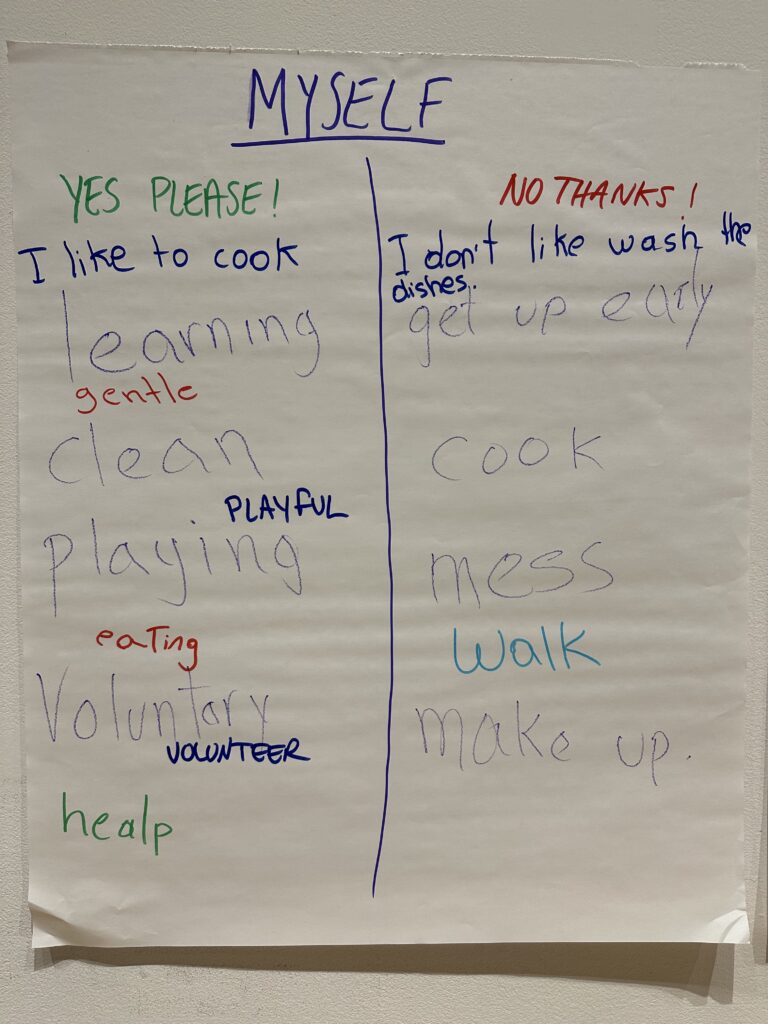 MYSELF
YES PLEASE!
I like to cook
learning
gentle
clean
PLAYFUL
playing
eaTing
Voluntary
VOLUNTEER
healp
NO THANKS!
I don't like wash the
dishes.
get up early
cook
mess
walk
make up.